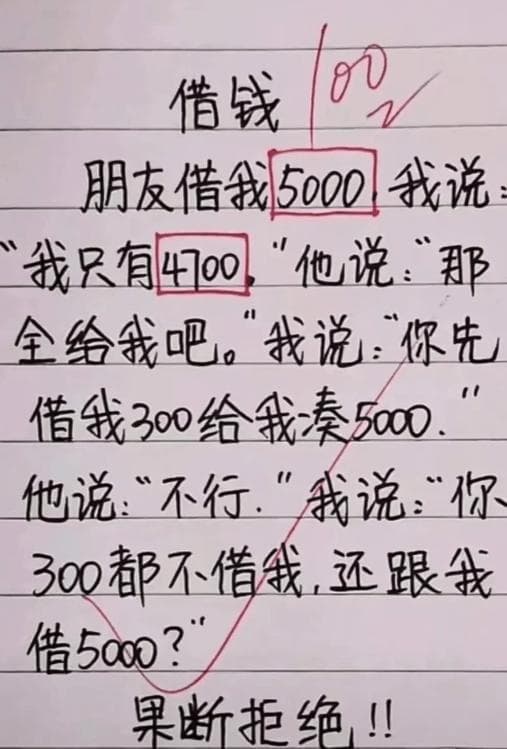 借钱 100
朋友借我5000,我说:
“我只有4700.”他说:“那
全给我吧。”我说:“你先
借我300给我凑5000.”
他说:“不行.”我说:“你
300都不借我,还跟我
借5000?”
果断拒绝!!